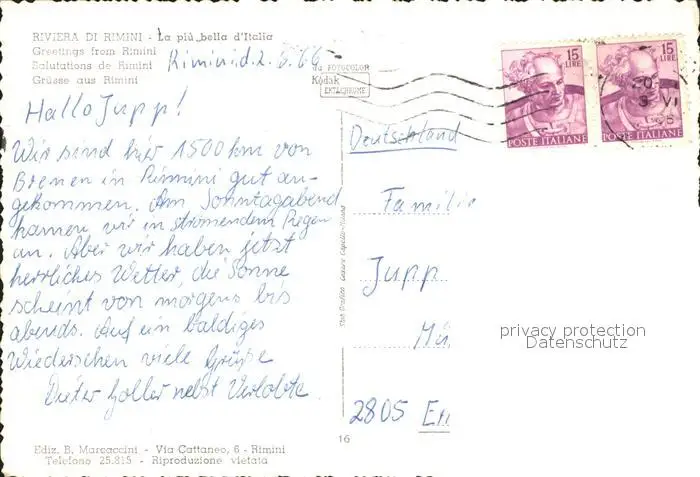 RIVIERA DI RIMINI - La più bella d'Italia
Greetings from Rimini
Salutations de Rimini
Grüsse aus Rimini
Rimini d. 2. 6. 66
da FOTOCOLOR
Kodak
EKTACHROME
15
LIRE
POSTE ITALIANE
15
LIRE
POSTE ITALIANE
Hallo Jupp!
Wir sind hier 1500 km von
Bremen in Rimini gut an-
gekommen. Am Sonntagabend
kamen wir in strömendem Regen
an. Aber wir haben jetzt
herrliches Wetter, die Sonne
scheint von morgens bis
abends. Auf ein baldiges
Wiedersehen viele Grüße
Dieter Goller nebst Verlobte.
Deutschland
Familie
Jupp
2805
privacy protection
Datenschutz
16
Ediz. B. Marcaccini - Via Cattaneo, 6 - Rimini
Telefono 25.815 - Riproduzione vietata